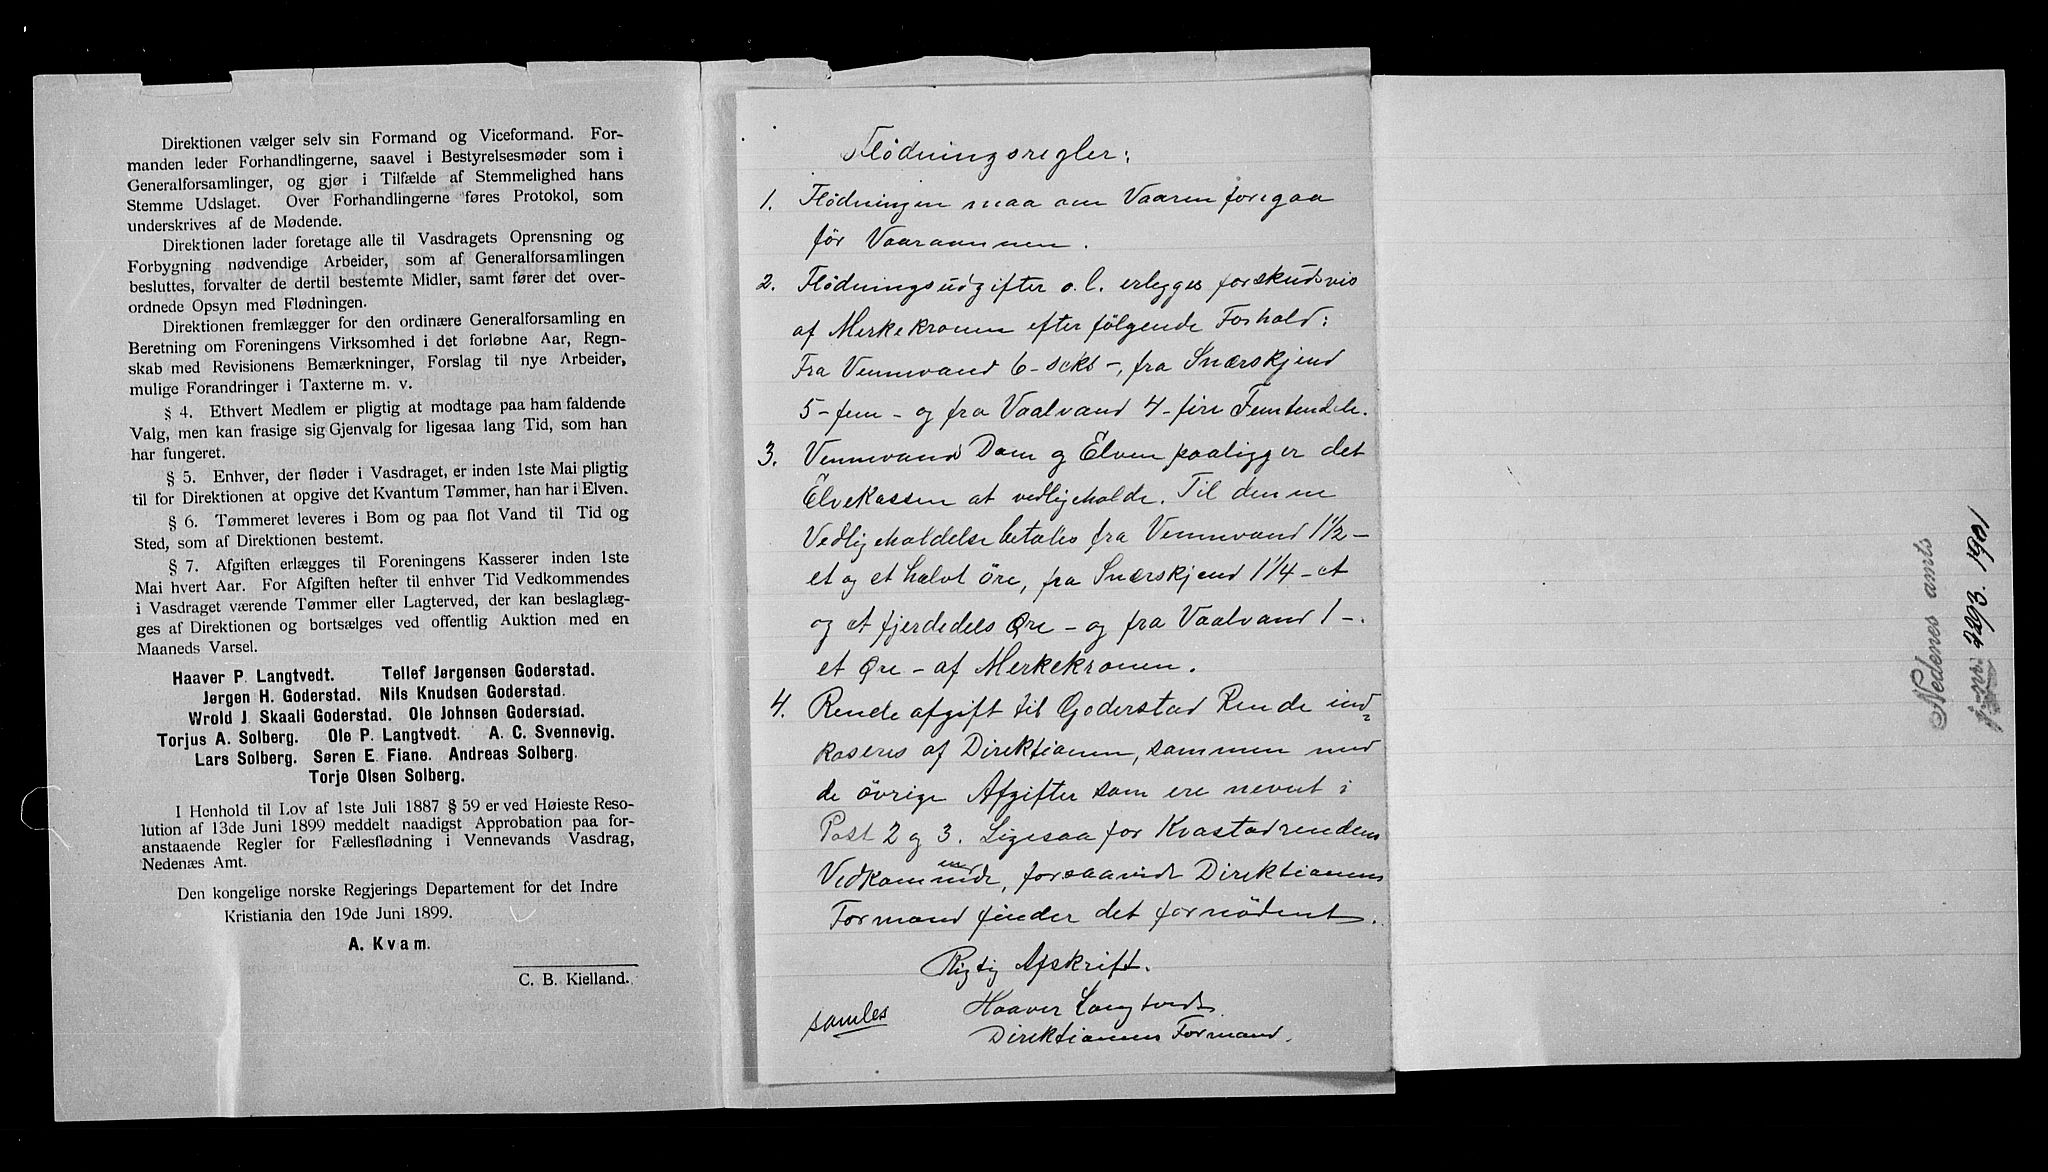 Direktionen vælger selv sin Formand og Viceformand. For-
manden leder Forhandlingerne, saavel i Bestyrelsesmøder som i
Generalforsamlinger, og gjør i Tilfælde af Stemmelighed hans
Stemme Udslaget. Over Forhandlingerne føres Protokol, som
underskrives af de Mødende.
Direktionen lader foretage alle til Vasdragets Oprensning og
Forbygning nødvendige Arbeider, som af Generalforsamlingen
besluttes, forvalter de dertil bestemte Midler, samt fører det over-
ordnede Opsyn med Flødningen.
Direktionen fremlægger for den ordinære Generalforsamling en
Beretning om Foreningens Virksomhed i det forløbne Aar, Regn-
skab med Revisionens Bemærkninger, Forslag til nye Arbeider,
mulige Forandringer i Taxterne m. v.
§ 4. Ethvert Medlem er pligtig at modtage paa ham faldende
Valg, men kan frasige sig Gjenvalg for ligesaa lang Tid, som han
har fungeret.
§ 5. Enhver, der fløder i Vasdraget, er inden 1ste Mai pligtig
til for Direktionen at opgive det Kvantum Tømmer, han har i Elven.
§ 6. Tømmeret leveres i Bom og paa flot Vand til Tid og
Sted, som af Direktionen bestemt.
§ 7. Afgiften erlægges til Foreningens Kasserer inden 1ste
Mai hvert Aar. For Afgiften hefter til enhver Tid Vedkommendes
i Vasdraget værende Tømmer eller Lagterved, der kan beslaglæg-
ges af Direktionen og bortsælges ved offentlig Auktion med en
Maaneds Varsel.
Haaver P. Langtvedt. Tellef Jørgensen Goderstad.
Jørgen H. Goderstad. Nils Knudsen Goderstad.
Wrold J. Skaali Goderstad. Ole Johnsen Goderstad.
Torjus A. Solberg. Ole P. Langtvedt. A. C. Svennevig.
Lars Solberg. Søren E. Fiane. Andreas Solberg.
Torje Olsen Solberg.
I Henhold til Lov af 1ste Juli 1887 § 59 er ved Høieste Reso-
lution af 13de Juni 1899 meddelt naadigst Approbation paa for-
anstaaende Regler for Fællesflødning i Vennevands Vasdrag,
Nedenæs Amt.
Den kongelige norske Regjerings Departement for det Indre
Kristiania den 19de Juni 1899.
A. Kvam.
C. B. Kielland.
Flödningsregler:
1. Flödningen maa om Vaaren foregaa
för Vaaraannen.
2. Flödningsudgifter o. l. erlegges forskudsvis
af Merkekronen efter fölgende Forhold:
Fra Vennevand 6-seks-, fra Snærskjend
5-fem- og fra Vaalvand 4-fire Femtendele.
3. Vennevand Dam og Elven paaligger det
Elvekassen at vedligeholde. Til denne
Vedligeholdelse betales fra Vennevand 1½-
et og et halvt öre, fra Snærskjend 1¼-et
og et fjerdedels Øre- og fra Vaalvand 1-.
et Øre- af Merkekronen.
4. Rendeafgift til Goderstad Rende ind-
kaseres af Direktionen, sammen med
de övrige Afgifter som ere nevnt i
Post 2 og 3. Ligesaa for Kvastadrendens
Vedkommende, forsaavidt Direktionens
Formand finder det fornödent.
Rigtig Afskrift.
samles
Haaver Langtvedt
Direktionens Formand.
Nedenes amts
j.nr. 2293. 1901